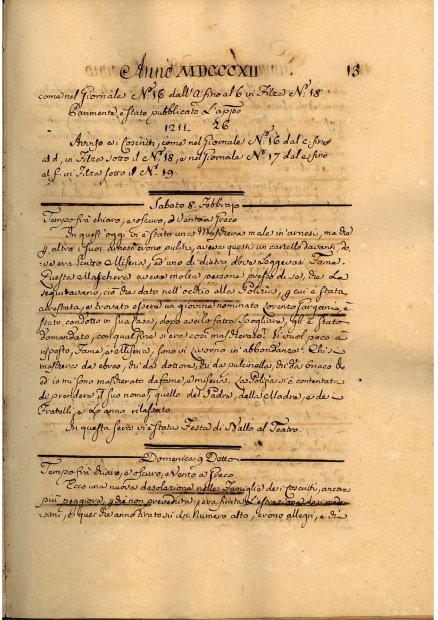 Anno MDCCCXII 13
come nel Giornale N.º 16 dall' A fino al 6 in Filza N.º 18
Parimente è stato pubblicato L'
1211 26
Avviso ai Coscritti, come nel Giornale N.º 16 dal c fino
al d, in Filza sotto il N.º 18, e nel Giornale N.º 17 dal e fino
al f. in Filza sotto il N.º 19.
Sabato 8 Febbraio
Tempo frà chiaro, e oscuro, e Vento a Greco
In quest' oggi vi è stato una Maschera male in arnesi, ma di
altro i suoi erono puliti, aveva questi un cartello davanti, do-
ve era scritto Miseria, ed uno di dietro dove leggevasi Fame.
Questa Maschera aveva molte persone presso di se, che La
seguitavano, ciò che dato nell' occhio alla Polizia, qui è stata
arrestata, e trovato essere un giovine nominato Lorenzo, è
stato condotto in sua casa, dopo averlo fatto spogliare, gli è stato
domandato, con qual fine si era così mascherato? Vi vuol poco a
risposto, Fame, e Miseria, sono in Livorno in abbondanza. Chi si
maschera da ebreo, chi da dottore, chi da pulcinella, chi da Greco &c
ed io mi sono mascherato da fame, e miseria. La Polizia si è contentata
di prendere il suo nome, quello del Padre, della Madre, e de
Fratelli, e Lo anno rilasciato.
In questa sera vi è stata Festa di Ballo al Teatro.
Domenica 9 Detto
Tempo frà chiaro, e oscuro, e Vento a Greco
Ecco una nuova desolazione nelle Famiglie dei Coscritti, ancora
più peggiore, che non preveduta, era finita L'estrazione dei mede-
simi, e quei che anno tirato su del Numero alto, erono allegri, e di